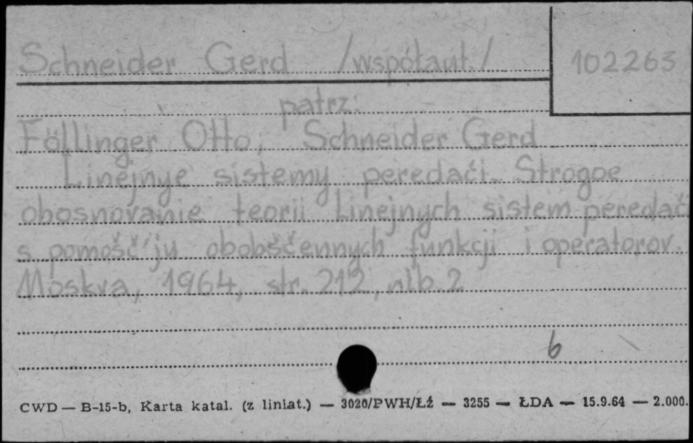 Schneider Gerd /współaut./ 102263
patrz:
Föllinger Otto, Schneider Gerd
Linejnye sistemy peredači. Strogoe
obosnovanie teorii linejnych sistem peredač
s pomošč'ju obobščennych funkcji i operatorov.
Moskva, 1964, str. 212, nlb. 2
b
CWD — B-15-b, Karta katal. (z liniat.) — 3020/PWH/ŁŹ — 3255 — ŁDA — 15.9.64 — 2.000.